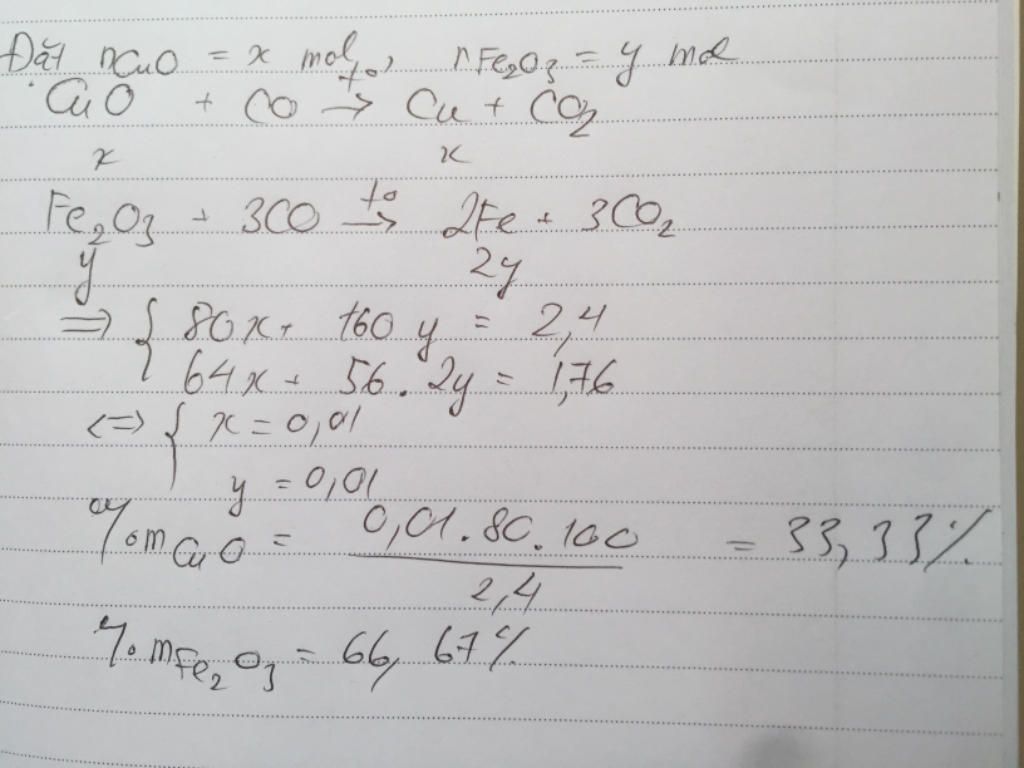 Đặt nCuO = x mol, nFe₂O₃ = y mol
CuO + CO →(t°) Cu + CO₂
x x
Fe₂O₃ + 3CO →(t°) 2Fe + 3CO₂
y 2y
=> { 80x + 160y = 2,4
64x + 56.2y = 1,76
<=> { x = 0,01
y = 0,01
%mCuO = 0,01.80.100 / 2,4 = 33,33%
%mFe₂O₃ = 66,67%